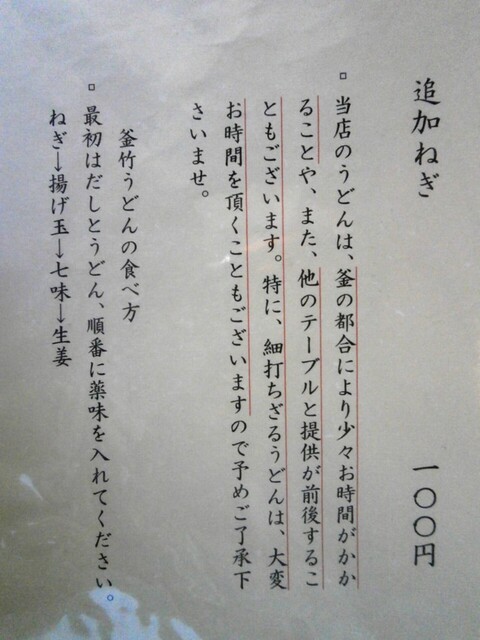 追加ねぎ 一〇〇円
▫ 当店のうどんは、釜の都合により少々お時間がかか
ることや、また、他のテーブルと提供が前後するこ
ともございます。特に、細打ちざるうどんは、大変
お時間を頂くこともございますので予めご了承下
さいませ。
釜竹うどんの食べ方
▫ 最初はだしとうどん、順番に薬味を入れてください。
ねぎ→揚げ玉→七味→生姜